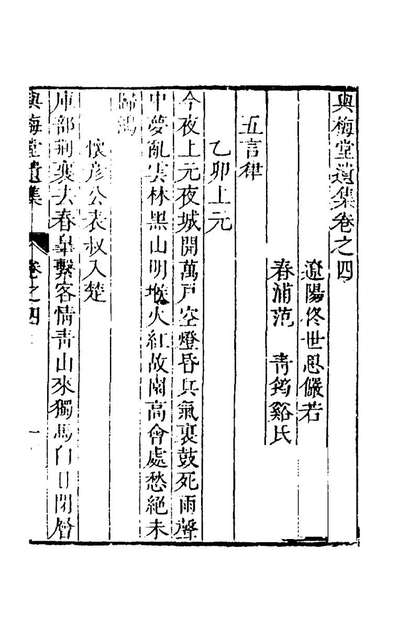 與梅堂遺集卷之四
遼陽佟世思儼若
春浦范 青筠谿氏
五言律
乙卯上元
今夜上元夜城開萬戶空燈昏兵氣裏鼓死雨聲
中夢亂雲林黑山明堠火紅故園高會處愁絕未
歸鴻
彥公表叔入楚
庫部荊襄去春皐繫客情青山來獨馬白日閉層
與梅堂遺集
卷之四
一